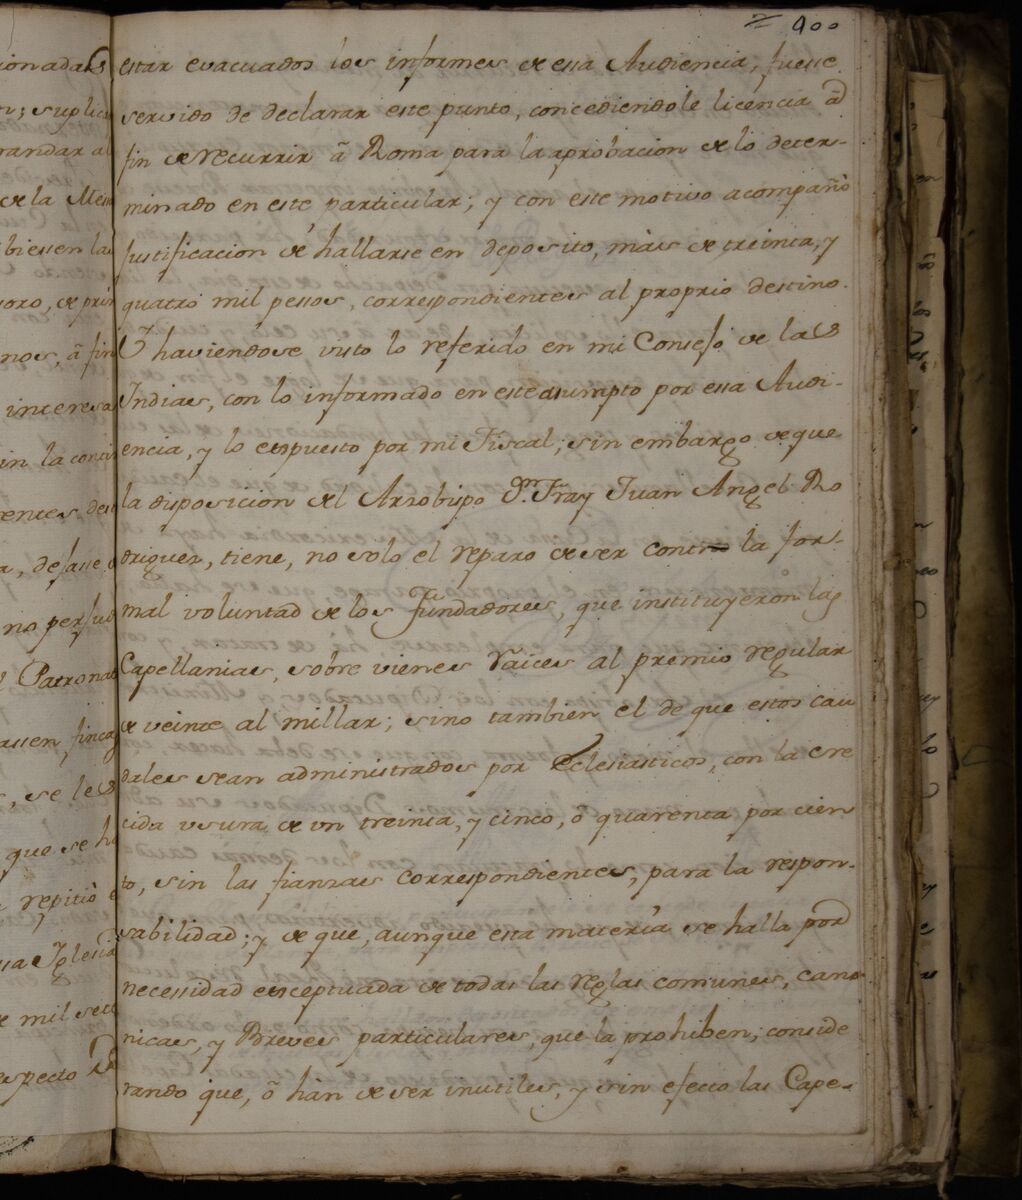 400
estar evacuados los informes de essa Audiencia, fuesse
servido de declarar este punto, concediendole licencia à
fin de recurrir â Roma para la aprobacion de lo deter-
minado en este particular; y con este motivo acompañò
Justificacion de hallarse en deposito, màs de treinta, y
quatro mil pesos, correspondientes al proprio destino.
Y haviendose visto lo referido en mi Consejo de las
Indias, con lo informado en este asumpto por essa Audi-
encia, y lo expuesto por mi Fiscal; sin embargo de que
la disposicion del Arzobispo Dn. Fray Juan Angel Ro
driguez, tiene, no solo el reparo de ser contra la for-
mal voluntad de los Fundadores, que instituyeron las
Capellanias, sobre vienes raices al premio regular
de veinte al millar; sino tambien el de que estos cau
dales sean administrados por Eclesiasticos, con la cre
cida usura de un treinta, y cinco, ô quarenta por cien
to, sin las fianzas correspondientes, para la respon-
sabilidad; y de que, aunque esta materia se halla por
necessidad exceptuada de todas las reglas comunes, cano
nicas, y Breves particulares, que la prohiben; conside
rando que, ô hàn de ser inutiles, y sin efecto las Cape-
ionadas
n; suplica
mandar al
de la Me
biessen las
soro, de prin
nos, â fin
interesa
in la con
entes des
a, dejasse
no perju
Patrona
assen finca
, se les
que se h
repitiò e
ssa Iglesia
e mil sete
especto